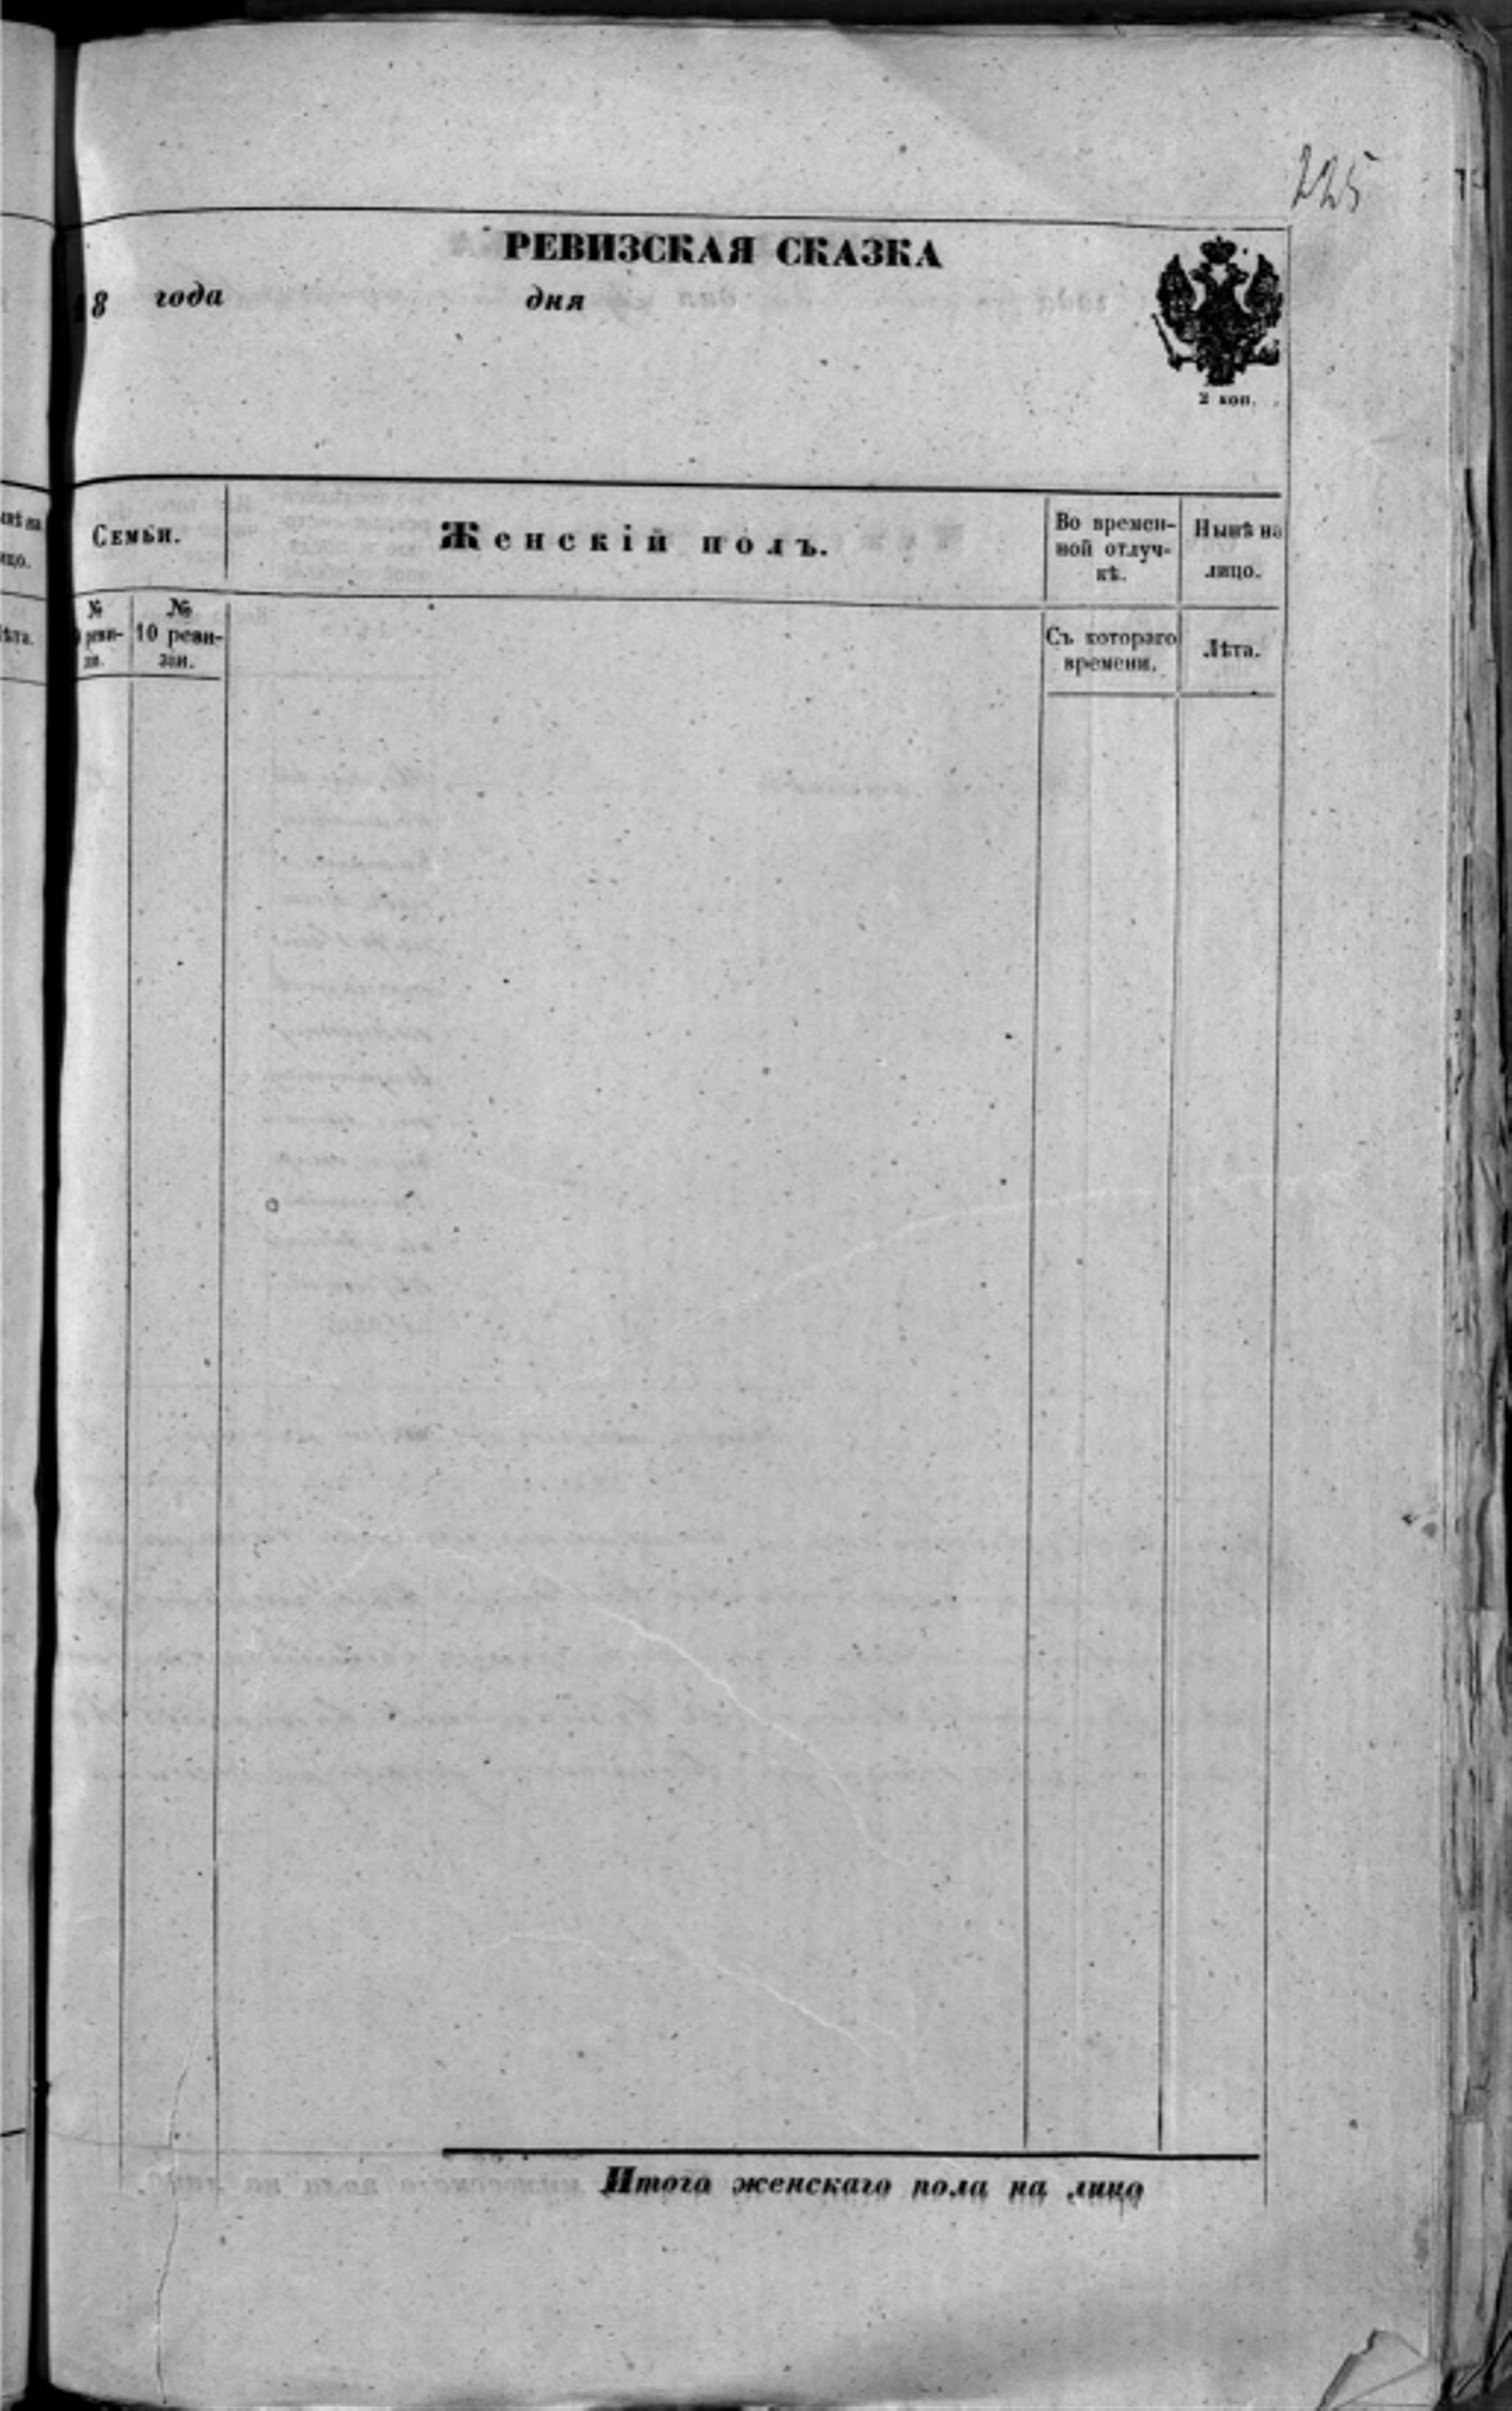 225
РЕВИЗСКАЯ СКАЗКА
18 года дня
2 коп.
Семьи.
Женскій полъ.
Во времен-
ной отлуч-
кѣ.
Нынѣ на
лицо.
№
реви-
зіи.
№
10 реви-
зіи.
Съ котораго
времени.
Лѣта.
Итого женскаго пола на лицо